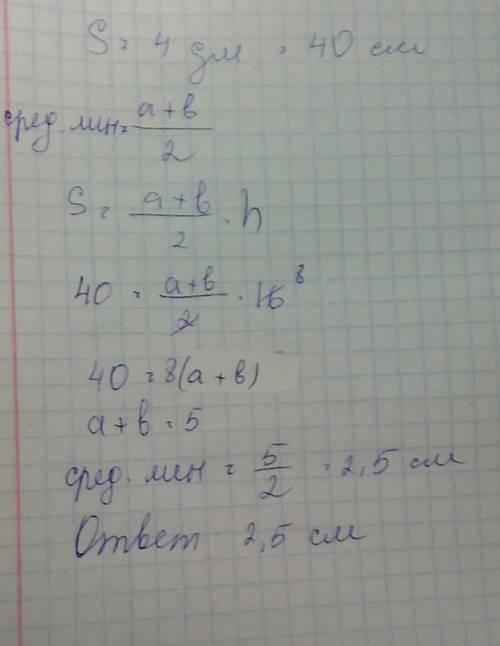 S = 4 дм = 40 см
сред. лин = a+b/2
S = a+b/2 · h
40 = a+b/2 · 16 8
40 = 8(a+b)
a+b = 5
сред. лин = 5/2 = 2,5 см
Ответ 2,5 см